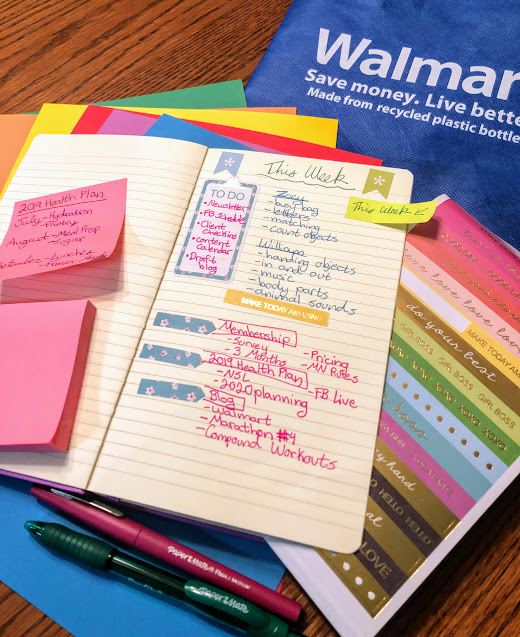 Walmar
Save money. Live bette
Made from recycled plastic bottle
2019 Health Plan
July - Hydration
Pantry
August - Meal Prep
- Sugar
- Lunches
This Week
TO DO
• Newsletter
• FB Schedule
• Client
Checkins
• Content
Calendar
• Draft
blog
Zoey
- busy bag
- letters
- matching
- count objects
Willapa
- handing objects
- in and out
- music
- body parts
- animal sounds
This Week
MAKE TODAY AMAZING
Membership
- Survey
3 Months
- Pricing
- MN Rules
2019 Health Plan
- NSV
- FB Live
- 2020 planning
Blog
- Walmart
- Marathon #4
- Compound Workouts
love love love love
MAKE TODAY AM
do your best
GIRL BOSS GIRL BOSS
XOXO
boss
HELLO HELLO HELLO
LOVE
PAPER MATE FLAIR MEDIUM
PAPER MATE